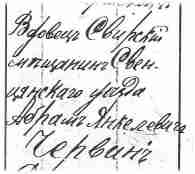 Вдовецъ Свирскій
мѣщанинъ Свен-
цянскаго уѣзда
Абрамъ Янкелевичъ
Червинъ